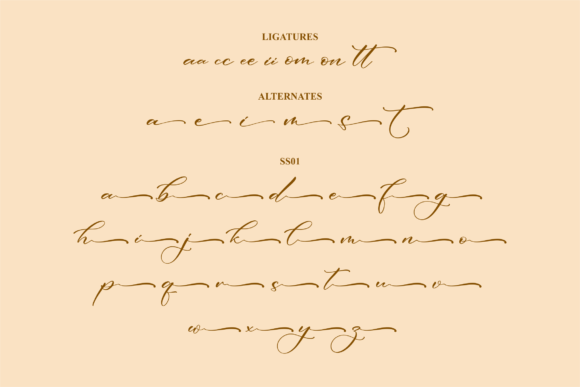 LIGATURES
aa cc ee ii om on tt
ALTERNATES
a e i m s t
SS01
a b c d e f g
h i j k l m n o
p q r s t u v
w x y z